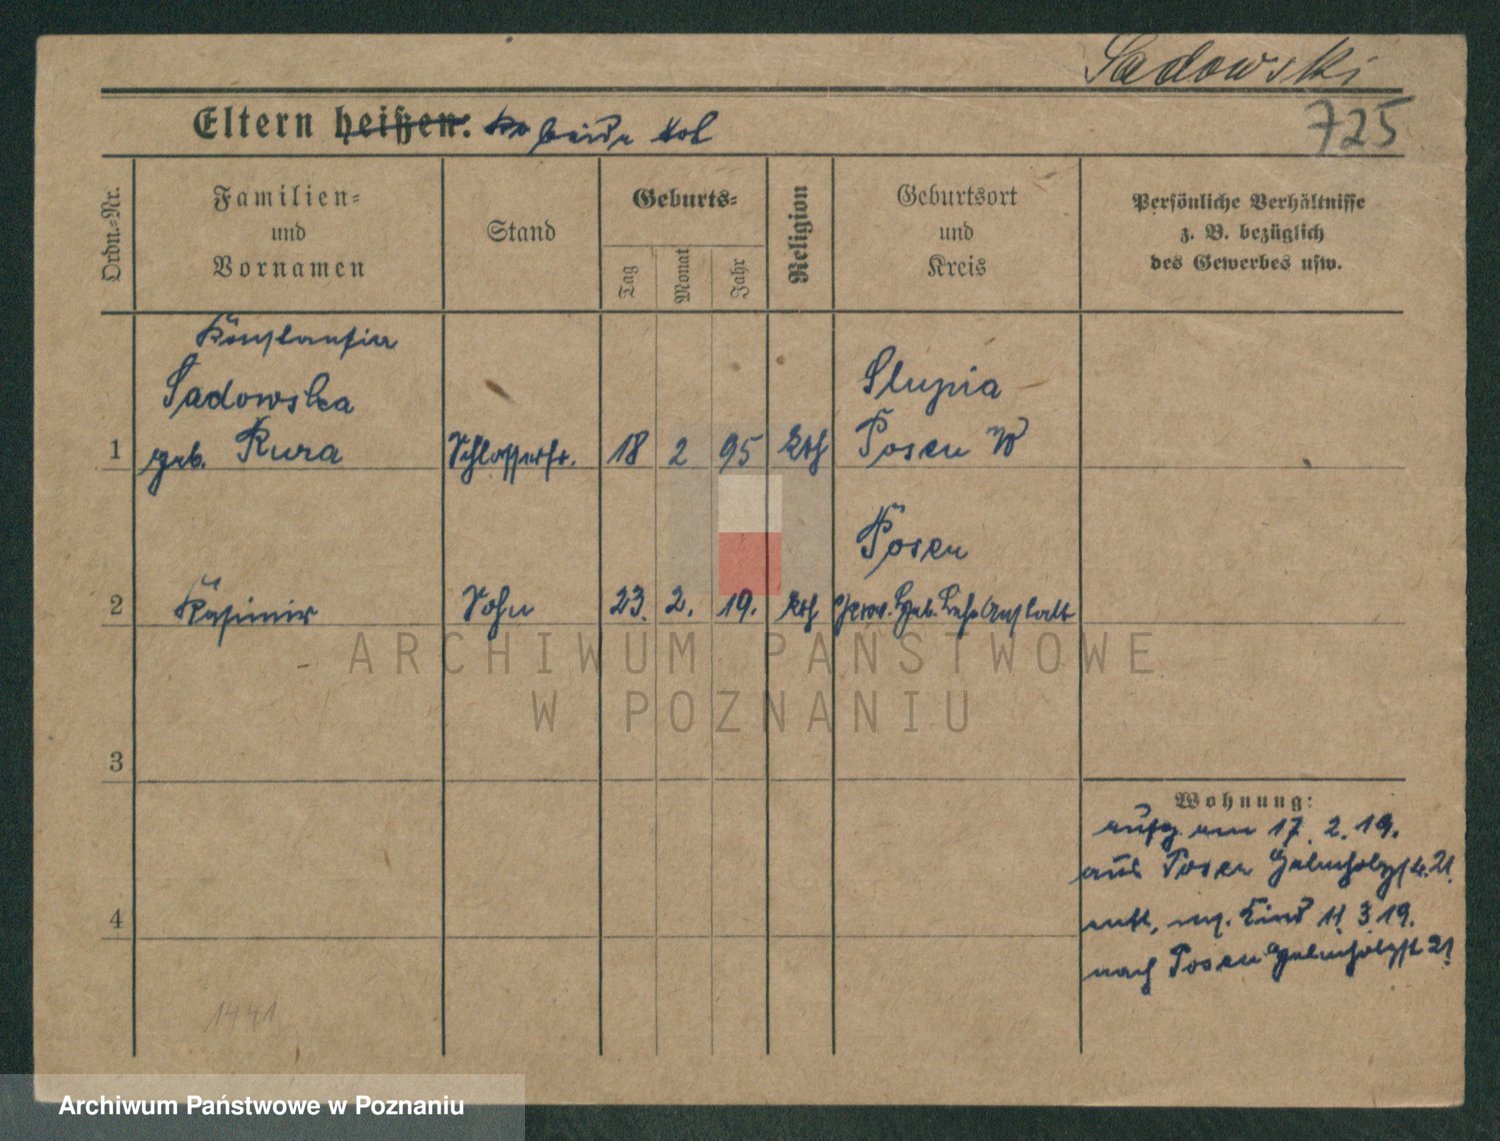 Sadowski
725
Eltern heißen: beide tot
Ordn.-Nr.
Familien-
und
Vornamen
Stand
Geburts-
Tag
Monat
Jahr
Religion
Geburtsort
und
Kreis
Persönliche Verhältnisse
z. B. bezüglich
des Gewerbes usw.
Konstantia
Sadowska
1 geb. Kura Schlosserfr. 18 2 95 kth
Slupia
Posen W
2 Kasimir Sohn 23. 2. 19. kth
Posen
Prov. Heb. Lehr Anstalt
3
4
Wohnung:
aufg. am 17. 2. 19.
aus Posen 21.
entl. m. Kind 11. 3 19.
nach Posen 21.
1441
ARCHIWUM PAŃSTWOWE
W POZNANIU
Archiwum Państwowe w Poznaniu